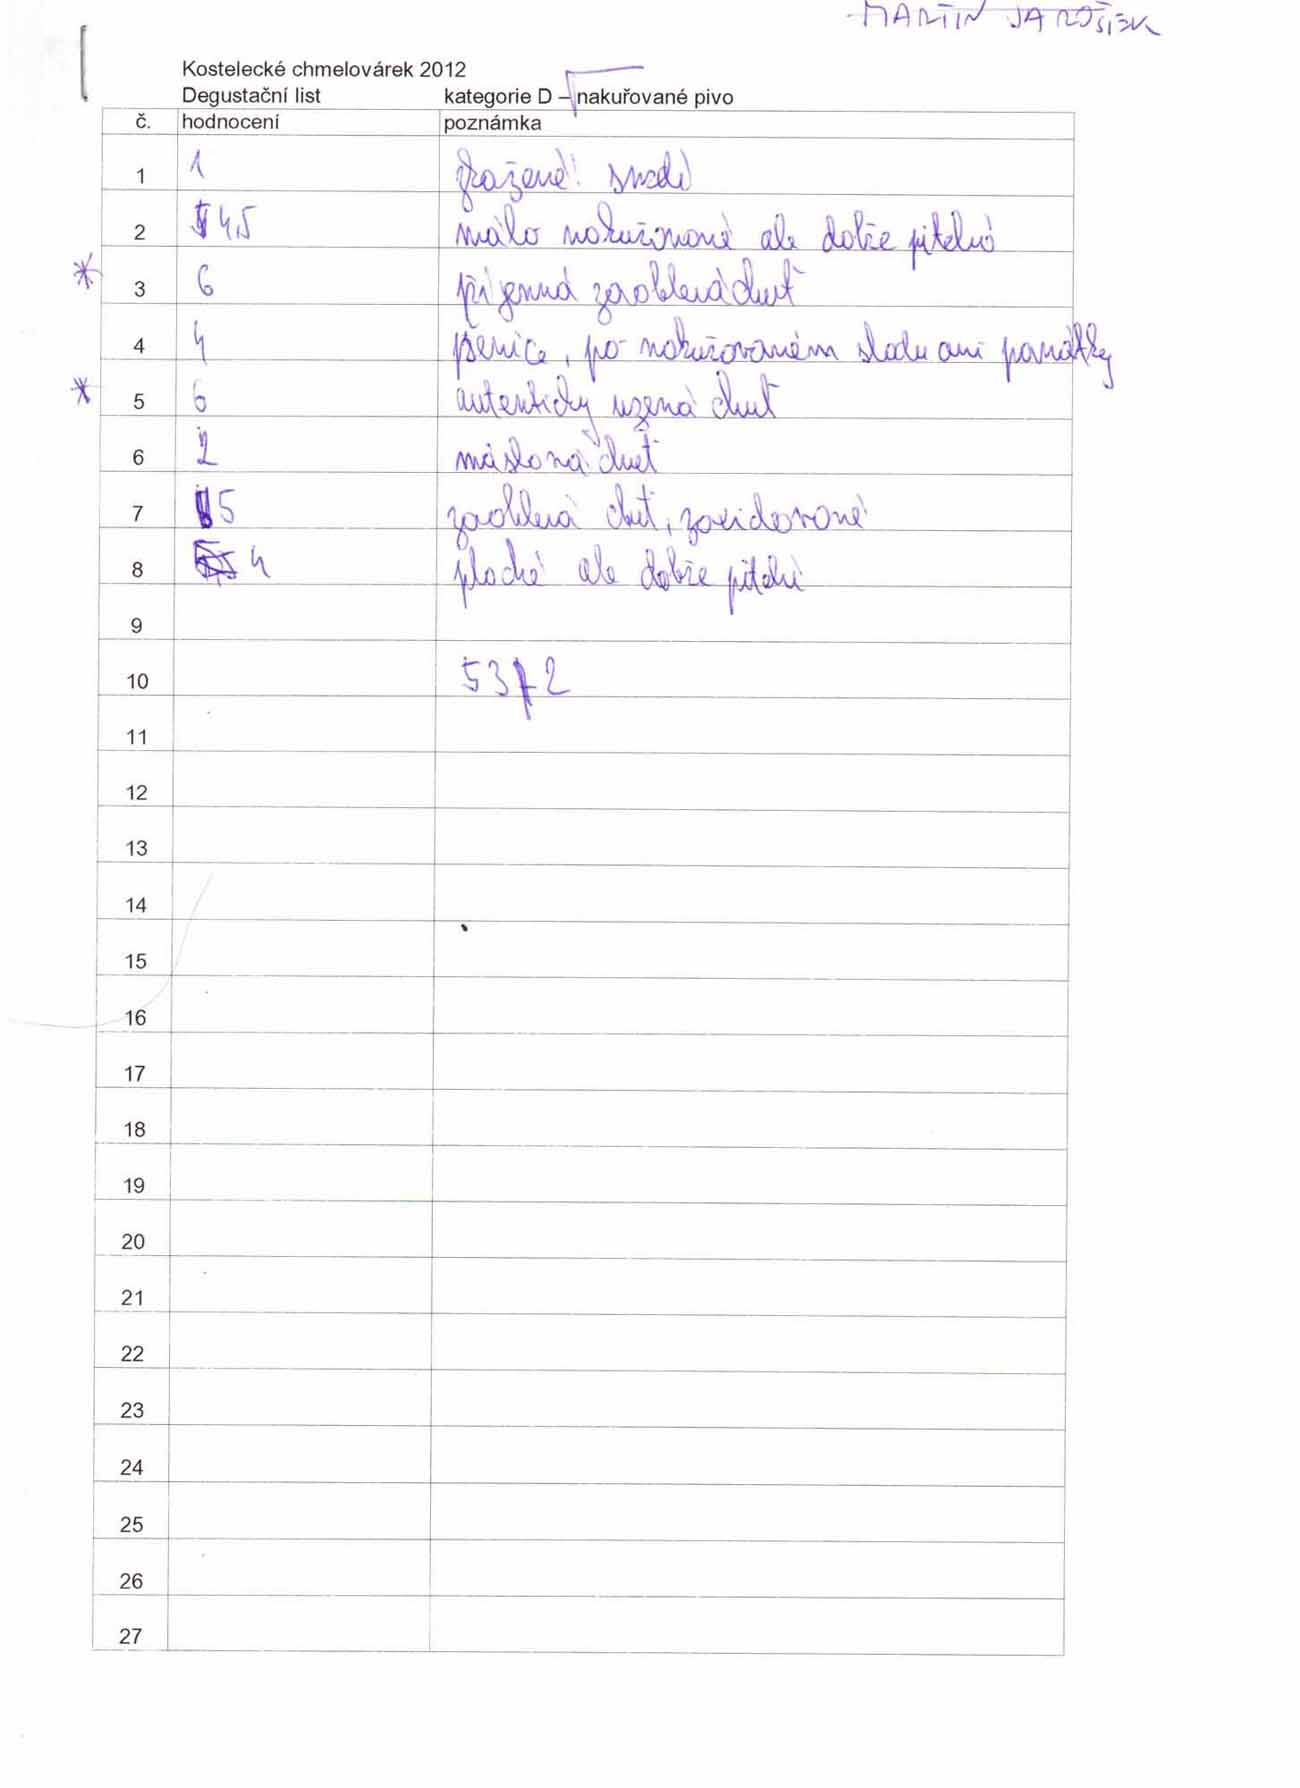 MARTIN JAROŠEK
Kostelecké chmelovárek 2012
Degustační list kategorie D – nakuřované pivo
č. hodnocení poznámka
1 1 zkažené! smrdí
2 4,5 málo nakuřované ale dobře pitelné
* 3 6 příjemná zaoblená chuť
4 4 pšenice, po nakuřovaném sladu ani památky
* 5 6 autenticky uzená chuť
6 2 máslová chuť
7 5 zaoblená chuť, zoxidované
8 4 ploché ale dobře pitelné
9
10 5372
11
12
13
14
15
16
17
18
19
20
21
22
23
24
25
26
27